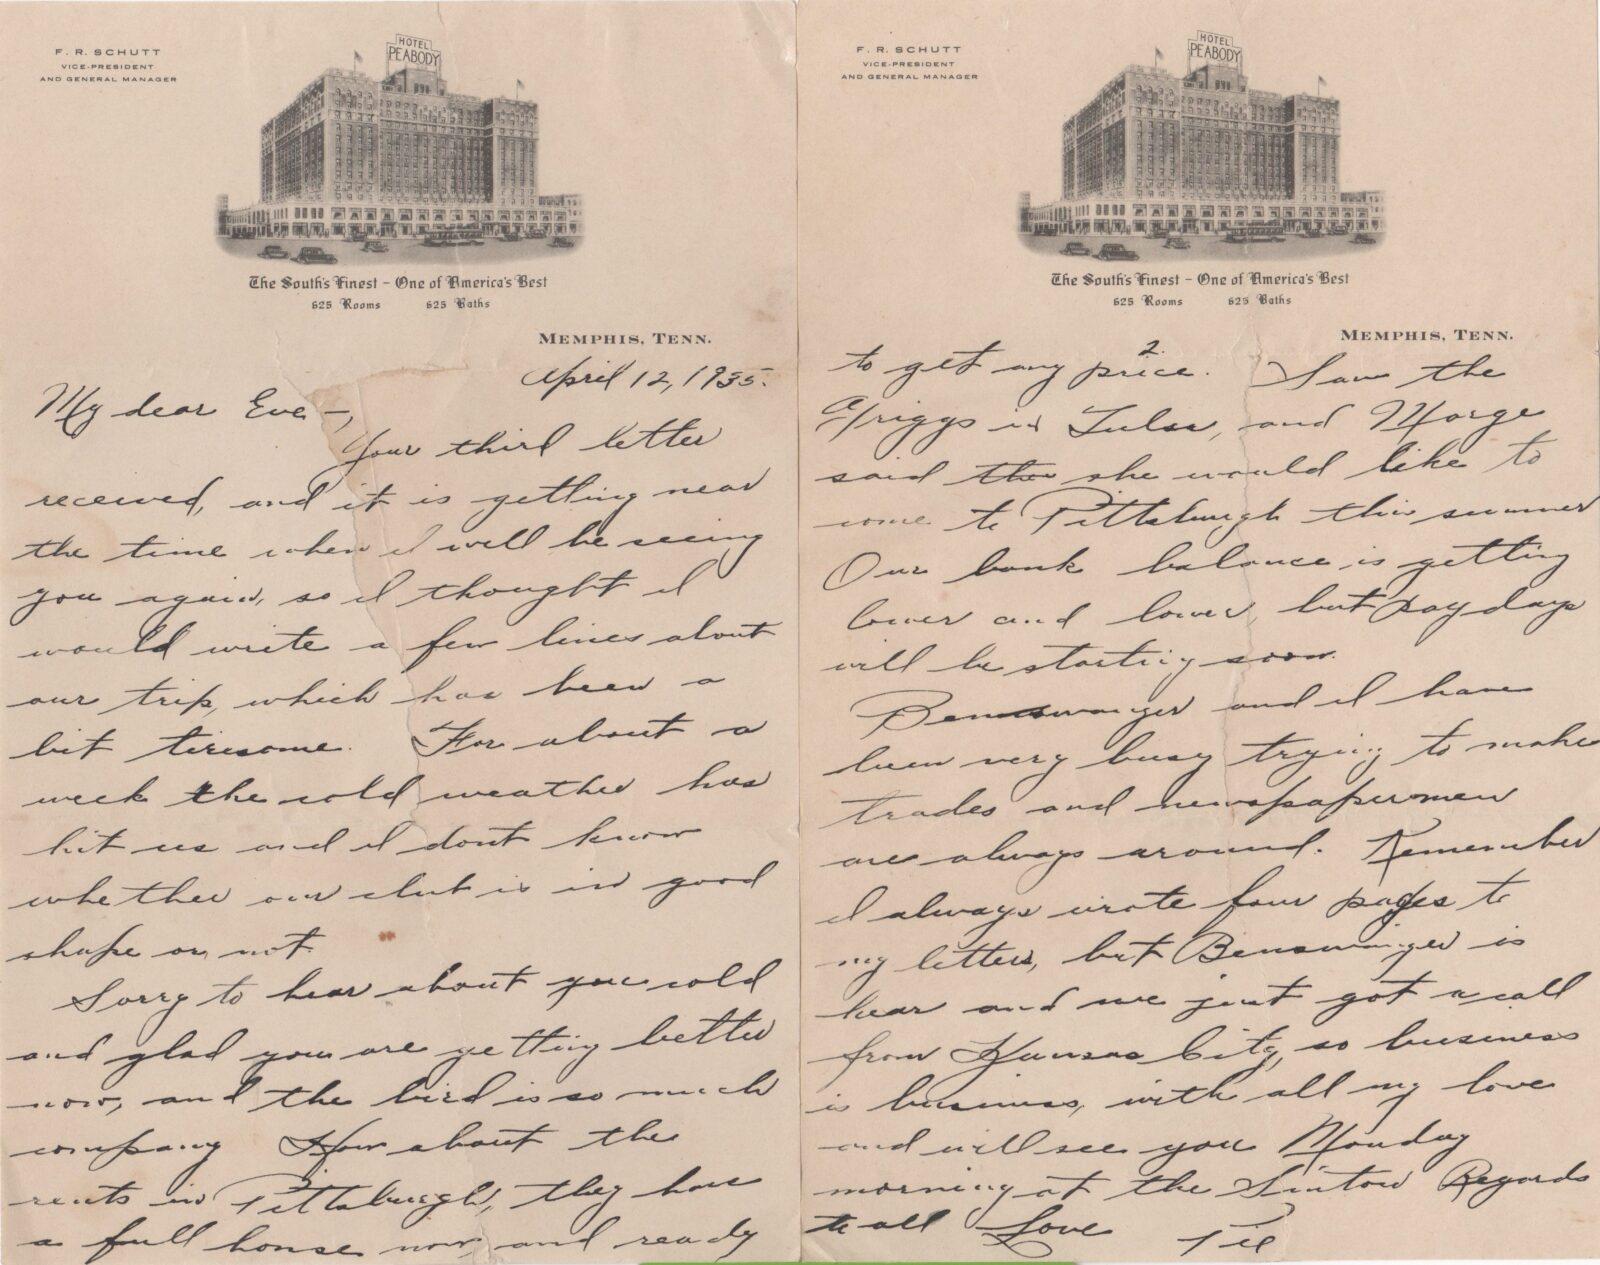 F. R. SCHUTT
VICE-PRESIDENT
AND GENERAL MANAGER
HOTEL
PEABODY
The South's Finest – One of America's Best
625 Rooms 625 Baths
MEMPHIS, TENN.
April 12, 1935.
My dear Eve –,
Your third letter
received, and it is getting near
the time when I will be seeing
you again, so I thought I
would write a few lines about
our trip, which has been a
bit tiresome. For about a
week the cold weather has
hit us and I dont know
whether our club is in good
shape or not.
Sorry to hear about you cold
and glad you are getting better
now, and the bird is so much
company How about the
rents in Pittsburgh, they have
a full house now and ready
F. R. SCHUTT
VICE-PRESIDENT
AND GENERAL MANAGER
HOTEL
PEABODY
The South's Finest – One of America's Best
625 Rooms 625 Baths
MEMPHIS, TENN.
2.
to get any price. Saw the
Griggs in Tulsa, and Marge
said she would like to
come to Pittsburgh this summer
Our bank balance is getting
lower and lower, but pay days
will be starting soon.
Benswanger and I have
been very busy trying to make
trades and newspapermen
are always around. Remember
I always wrote four pages to
my letters, but Benswanger is
hear and we just got a call
from Kansas City, so business
is business, with all my love
and will see you Monday
morning at the Sinton Regards
to all Love Pie